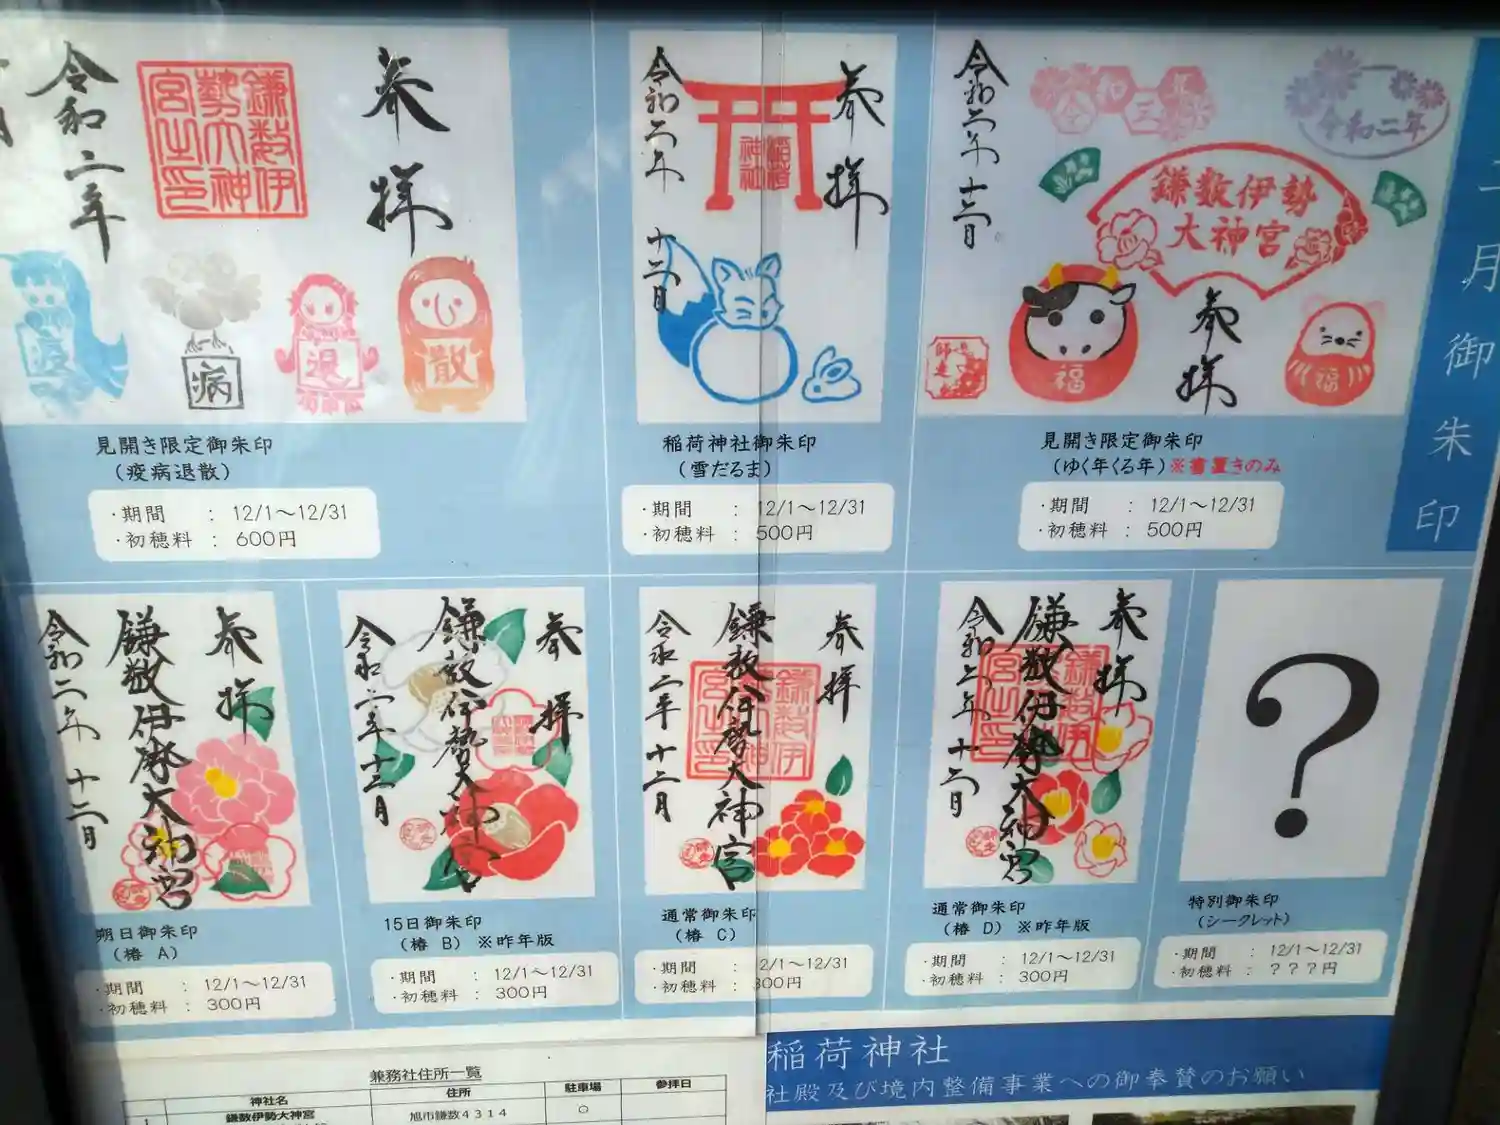 十二月御朱印
令和二年
鎌数伊
勢大神
宮之印
奉拝
疫
病
退
散
見開き限定御朱印
(疫病退散)
・期間 : 12/1~12/31
・初穂料 : 600円
令和二年 十二月
稲荷
神社
奉拝
稲荷神社御朱印
(雪だるま)
・期間 : 12/1~12/31
・初穂料 : 500円
令和二年 十二月
令和三年
令和二年
鎌数伊勢
大神宮
師走
福
奉拝
福
見開き限定御朱印
(ゆく年くる年)※書置きのみ
・期間 : 12/1~12/31
・初穂料 : 500円
奉拝
鎌数伊勢大神宮
令和二年 十二月
朔日御朱印
(椿 A)
・期間 : 12/1~12/31
・初穂料 : 300円
奉拝
鎌数伊勢大神宮
令和二年 十二月
15日御朱印
(椿 B) ※昨年版
・期間 : 12/1~12/31
・初穂料 : 300円
奉拝
鎌数伊勢大神宮
鎌数伊
勢大神
宮之印
令和二年 十二月
通常御朱印
(椿 C)
・期間 : 12/1~12/31
・初穂料 : 300円
奉拝
鎌数伊勢大神宮
令和二年 十二月
通常御朱印
(椿 D) ※昨年版
・期間 : 12/1~12/31
・初穂料 : 300円
?
特別御朱印
(シークレット)
・期間 : 12/1~12/31
・初穂料 : ???円
兼務社住所一覧
神社名 住所 駐車場 参拝日
1 鎌数伊勢大神宮 旭市鎌数4314 ○
稲荷神社
社殿及び境内整備事業への御奉賛のお願い